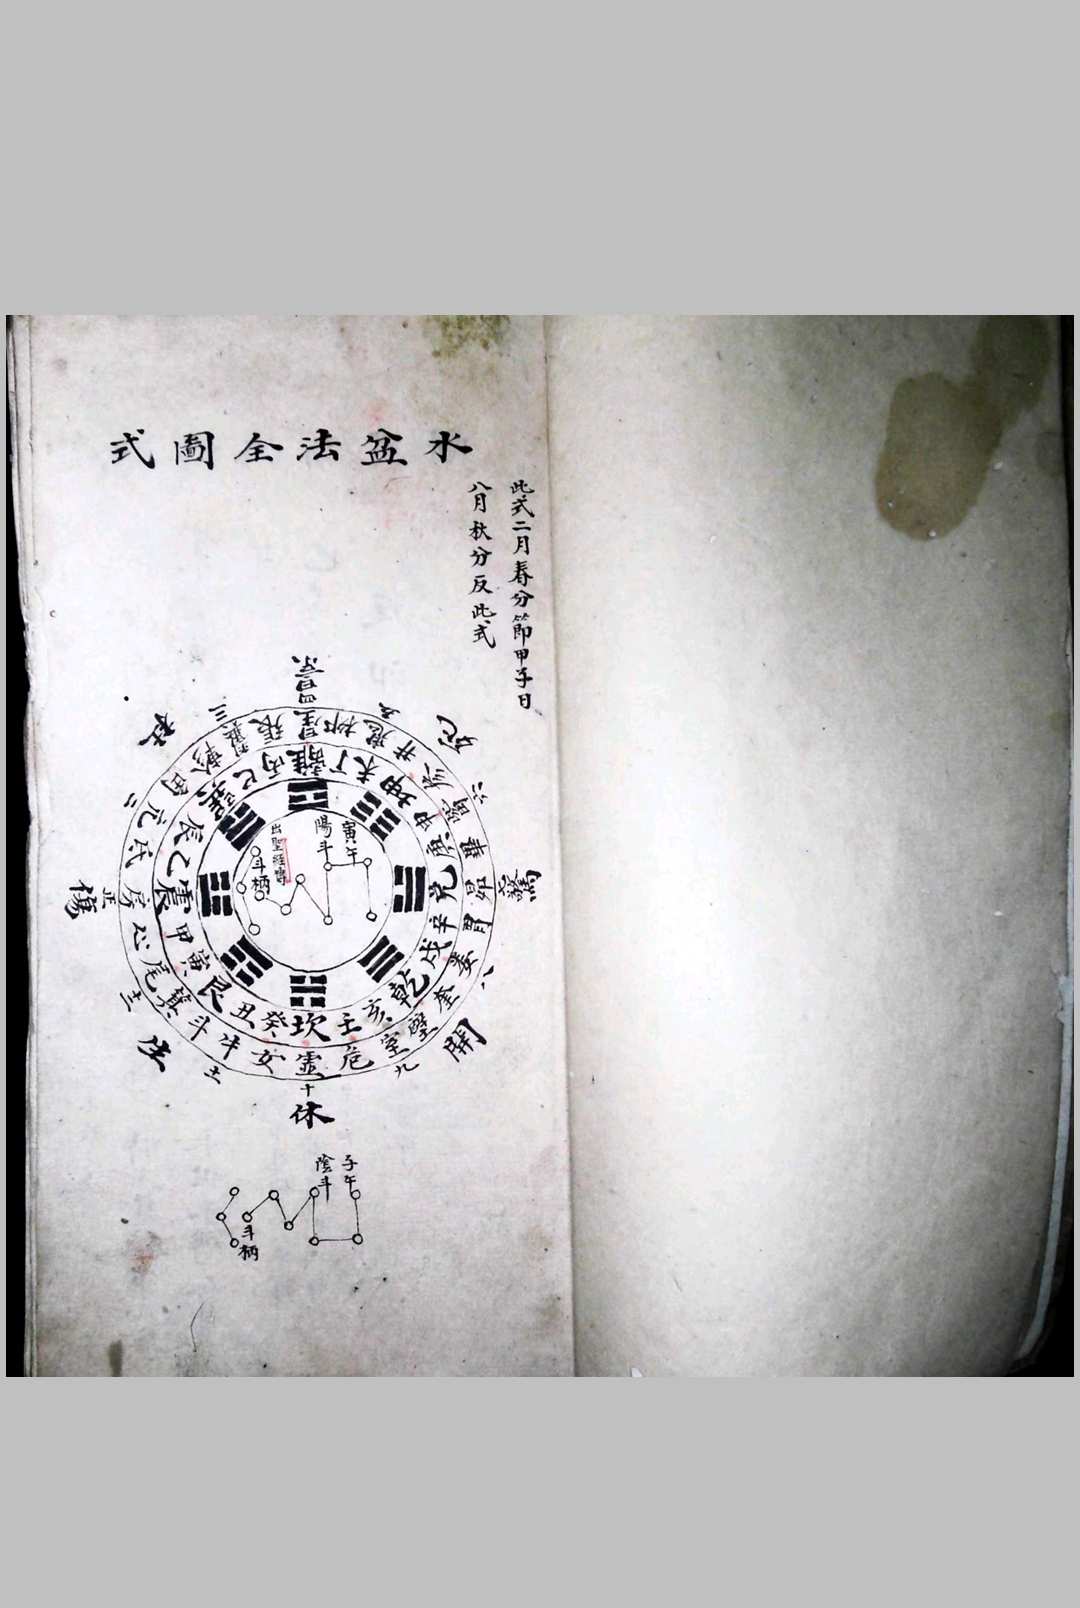 水盆法全圖式
此式二月春分節甲子日
八月秋分反此式
景
死
驚
開
休
生
傷
杜
四
五
六
七
八
九
十
十一
十二
正
二
三
星
柳
鬼
井
參
觜
畢
昴
胃
婁
奎
壁
室
危
虛
女
牛
斗
箕
尾
心
房
氐
亢
角
軫
翼
張
離
丁
未
坤
申
庚
兌
辛
戌
乾
亥
壬
坎
癸
丑
艮
寅
甲
震
乙
辰
巽
巳
丙
寅午
陽斗
斗柄
子午
陰斗
斗柄